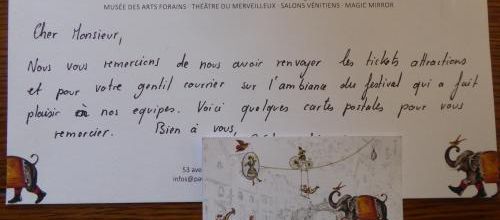 MUSÉE DES ARTS FORAINS · THÉÂTRE DU MERVEILLEUX · SALONS VÉNITIENS · MAGIC MIRROR
Cher Monsieur,
Nous vous remercions de nous avoir renvoyer les tickets attractions
et pour votre gentil courrier sur l'ambiance du festival qui a fait
plaisir à nos equipes. Voici quelques cartes postales pour vous
remercier. Bien à vous,
53 ave
infos@pa